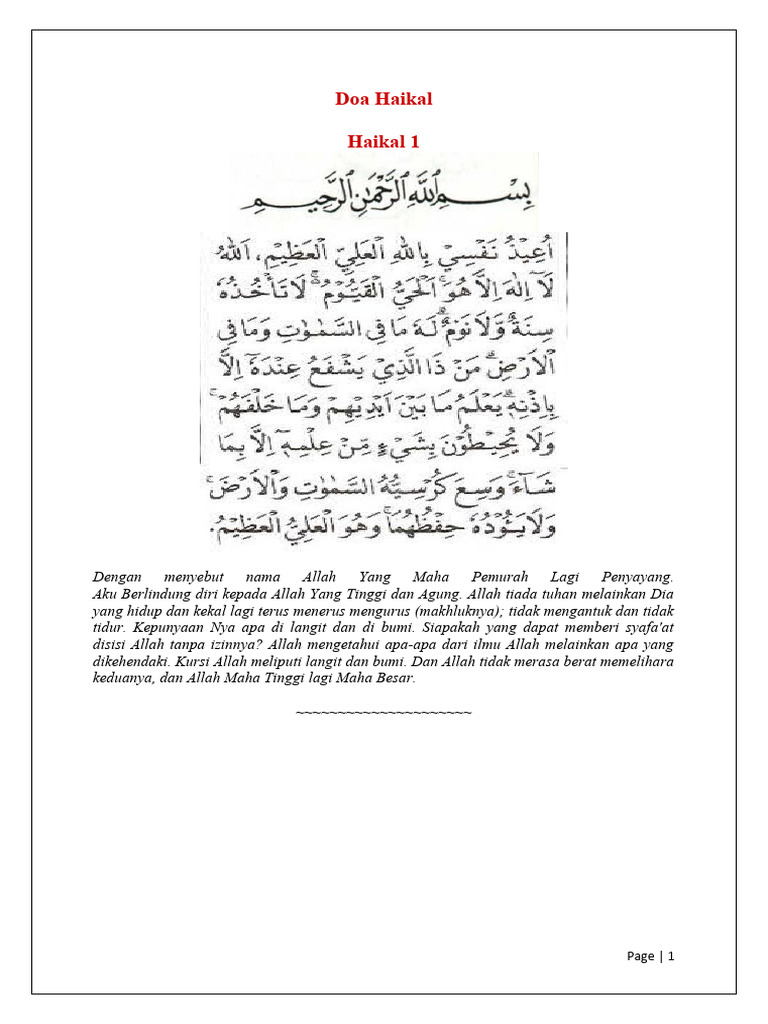 Doa Haikal
Haikal 1
بِسْمِ اللهِ الرَّحْمٰنِ الرَّحِيمِ
اُعِيْذُ نَفْسِيْ بِاللهِ الْعَلِيِّ الْعَظِيْمِ، اَللهُ
لَآ اِلٰهَ اِلَّا هُوَۚ اَلْحَيُّ الْقَيُّوْمُ ەۚ لَا تَأْخُذُهٗ
سِنَةٌ وَّلَا نَوْمٌۗ لَهٗ مَا فِى السَّمٰوٰتِ وَمَا فِى
الْاَرْضِۗ مَنْ ذَا الَّذِيْ يَشْفَعُ عِنْدَهٗٓ اِلَّا
بِاِذْنِهٖۗ يَعْلَمُ مَا بَيْنَ اَيْدِيْهِمْ وَمَا خَلْفَهُمْۚ
وَلَا يُحِيْطُوْنَ بِشَيْءٍ مِّنْ عِلْمِهٖٓ اِلَّا بِمَا
شَآءَۚ وَسِعَ كُرْسِيُّهُ السَّمٰوٰتِ وَالْاَرْضَۚ
وَلَا يَئُوْدُهٗ حِفْظُهُمَاۚ وَهُوَ الْعَلِيُّ الْعَظِيْمُ.
Dengan menyebut nama Allah Yang Maha Pemurah Lagi Penyayang.
Aku Berlindung diri kepada Allah Yang Tinggi dan Agung. Allah tiada tuhan melainkan Dia
yang hidup dan kekal lagi terus menerus mengurus (makhluknya); tidak mengantuk dan tidak
tidur. Kepunyaan Nya apa di langit dan di bumi. Siapakah yang dapat memberi syafa'at
disisi Allah tanpa izinnya? Allah mengetahui apa-apa dari ilmu Allah melainkan apa yang
dikehendaki. Kursi Allah meliputi langit dan bumi. Dan Allah tidak merasa berat memelihara
keduanya, dan Allah Maha Tinggi lagi Maha Besar.
~~~~~~~~~~~~~~~~~~~~~
Page | 1